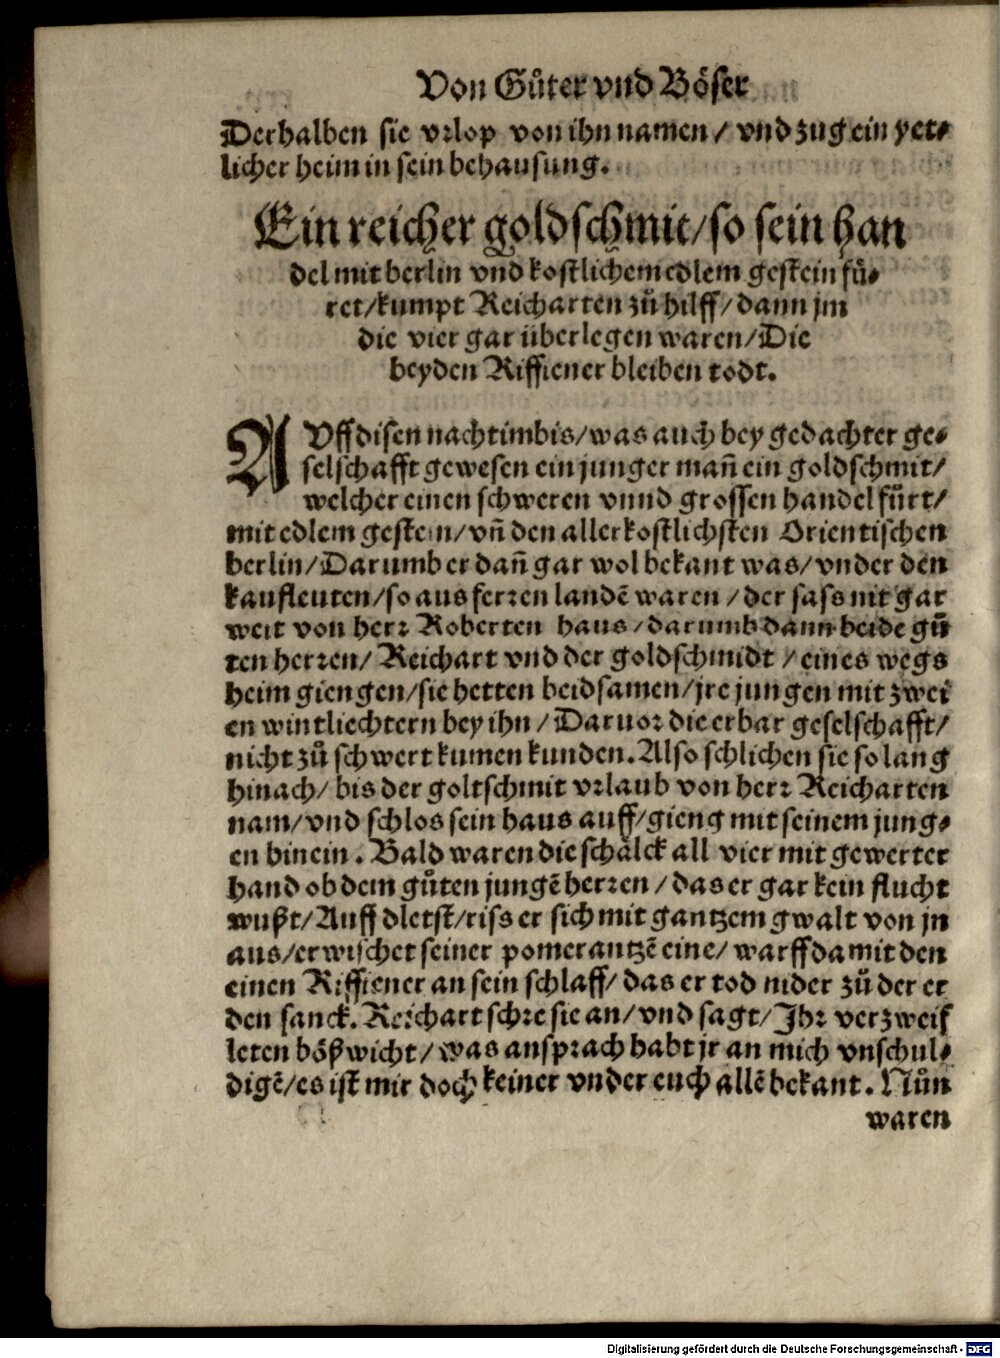 Von Gůter vnd Böser
Derhalben sie vrlop von ihn namen / vnd zug ein yet⸗
licher heim in sein behausung.
Ein reicher goldschmit/so sein han
del mit berlin vnd kostlichem edlem gestein fů⸗
ret/kumpt Reicharten zů hilff/dann jm
die vier gar überlegen waren/Die
beyden Riffiener bleiben todt.
AVff disen nachtimbis/was auch bey gedachter ge⸗
selschafft gewesen ein junger mañ ein goldschmit/
welcher einen schweren vnnd grossen handel fůrt/
mit edlem gestein/vñ den aller kostlichsten Orientischen
berlin/Darumb er dañ gar wol bekant was/vnder den
kaufleuten/so aus ferren landē waren /der sass nit gar
weit von herr Roberten haus/darumb dann beide gů
ten herren/ Reichart vnd der goldschmidt / eines wegs
heim giengen/sie hetten beidsamen/jre jungen mit zwei
en wintliechtern bey ihn / Daruor die erbar geselschafft/
nicht zů schwert kumen kunden. Also schlichen sie so lang
hinach/ bis der goltschmit vrlaub von herr Reicharten
nam/vnd schlos sein haus auff/gieng mit seinem jung⸗
en hinein . Bald waren die schälck all vier mit gewerter
hand ob dem gůten jungē herren / das er gar kein flucht
wußt/Auff dletst/riss er sich mit gantzem gwalt von jn
aus/erwischet seiner pomerantzē eine/ warff damit den
einen Riffiener an sein schlaff/ das er tod nider zů der er
den sanck. Reichart schre sie an/vnd sagt/Ihr verzweif
leten bößwicht/was ansprach habt jr an mich vnschul⸗
digē/es ist mir doch keiner vnder euch allē bekant. Nůn
waren
Digitalisierung gefördert durch die Deutsche Forschungsgemeinschaft - DFG